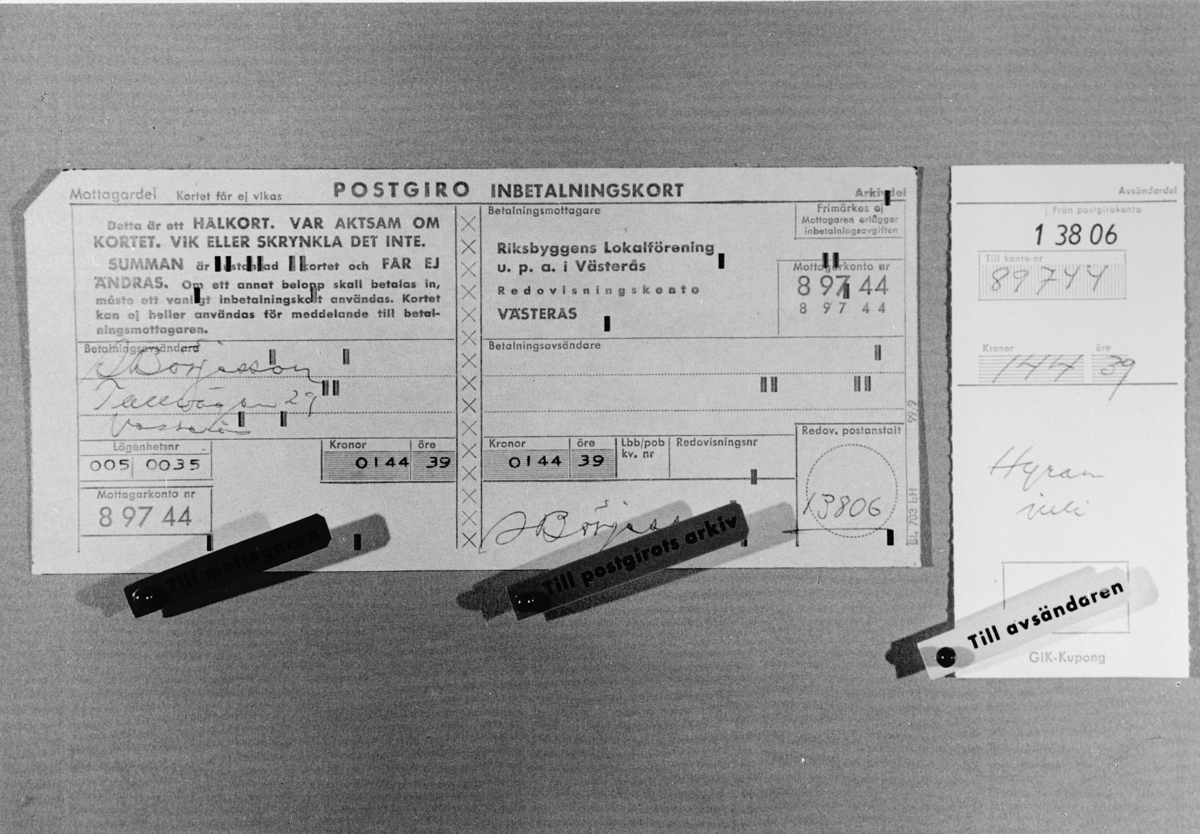 Mottagardel Kortet får ej vikas POSTGIRO INBETALNINGSKORT Arkivdel
Detta är ett HÅLKORT. VAR AKTSAM OM
KORTET. VIK ELLER SKRYNKLA DET INTE.
SUMMAN är kortet och FÅR EJ
ÄNDRAS. Om ett annat belopp skall betalas in,
måste ett vanligt inbetalningskort användas. Kortet
kan ej heller användas för meddelande till betal-
ningsmottagaren.
Betalningsavsändare
Börjesson
Tallvägen 29
Västerås
Lägenhetsnr
005 0035
Kronor öre
0144 39
Mottagarkonto nr
8 97 44
Till mottagaren
Betalningsmottagare
Riksbyggens Lokalförening
u. p. a. i Västerås
Redovisningskonto
VÄSTERÅS
Frimärkes ej
Mottagaren erlägger
inbetalningsavgiften
Mottagarkonto nr
8 97 44
8 97 44
Betalningsavsändare
Kronor öre
0144 39
Lbb/pob
kv. nr
Redovisningsnr
Redov. postanstalt
13806
Till postgirots arkiv
Bl. 703 bH 99.9
Avsändardel
Från postgirokonto
1 38 06
Till konto-nr
89744
Kronor öre
144 39
Hyran
Till avsändaren
GIK-Kupong